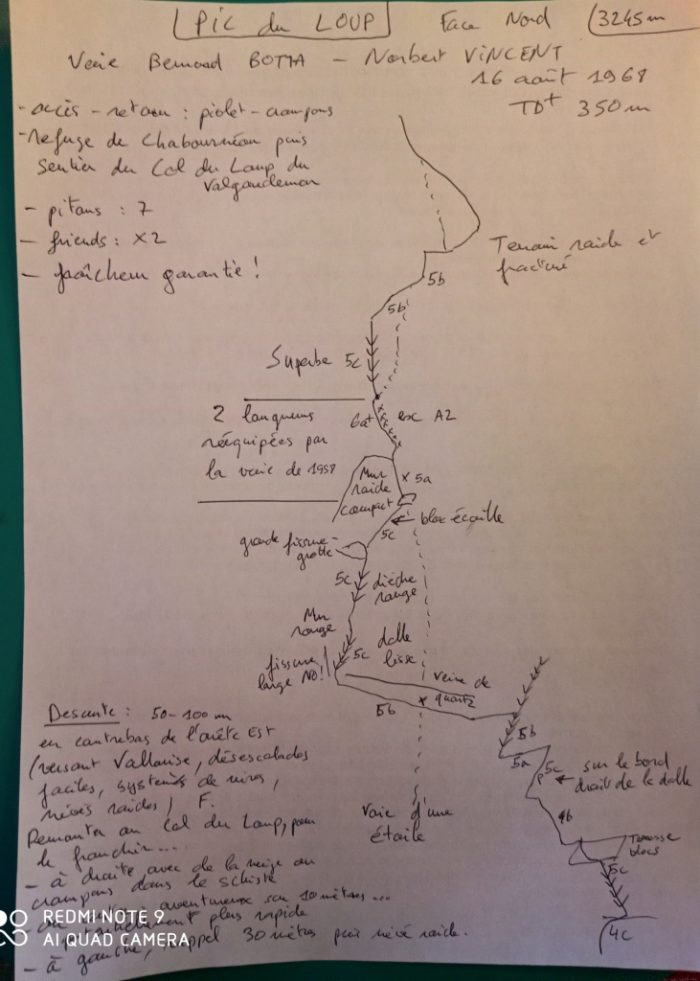 PIC du LOUP Face Nord (3245m
Voie Bernard BOTTA - Norbert VINCENT
16 août 1968
TD+ 350m
- accès - retour : piolet - crampons
- refuge de Chabournéou puis
sentier du Col du Loup du
Valgaudemar
- pitons : 7
- friends : x2
- fraîcheur garantie !
Terrain raide et
fracturé
5b
5b
Superbe 5c
2 longueurs
rééquipées par
la voie de 1958
6a+ A2
Mur
raide
compact
x 5a
bloc écaille
5c
grande fissure-
grotte
5c dièdre
rouge
Mur
rouge
5c dalle
lisse
fissure
large NO!
veine de
quartz
5b
5b
5a
5c
sur le bord
droit de la dalle
4b
Terrasse
blocs
5c
4c
Voie d'une
étoile
Descente : 50-100m
en contrebas de l'arête Est
(versant Vallouise, désescalades
faciles, systèmes de vires,
névés raides) F.
Remonter au Col du Loup, pour
le franchir...
- à droite avec de la neige ou
crampons dans le schiste
aventureux sur 10 mètres...
plus rapide
- à gauche, rappel 30 mètres puis névé raide.
REDMI NOTE 9
AI QUAD CAMERA